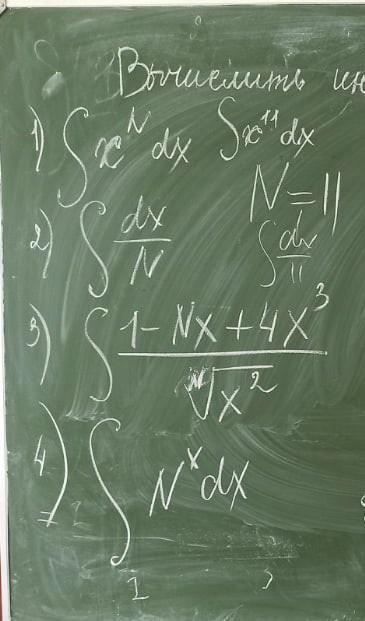 Вычислить ин
1) ∫ x^N dx ∫ x^11 dx
N = 11
2) ∫ dx/N ∫ dx/11
3) ∫ (1 - Nx + 4x^3)/ᴺ√(x^2)
4) ∫ N^x dx